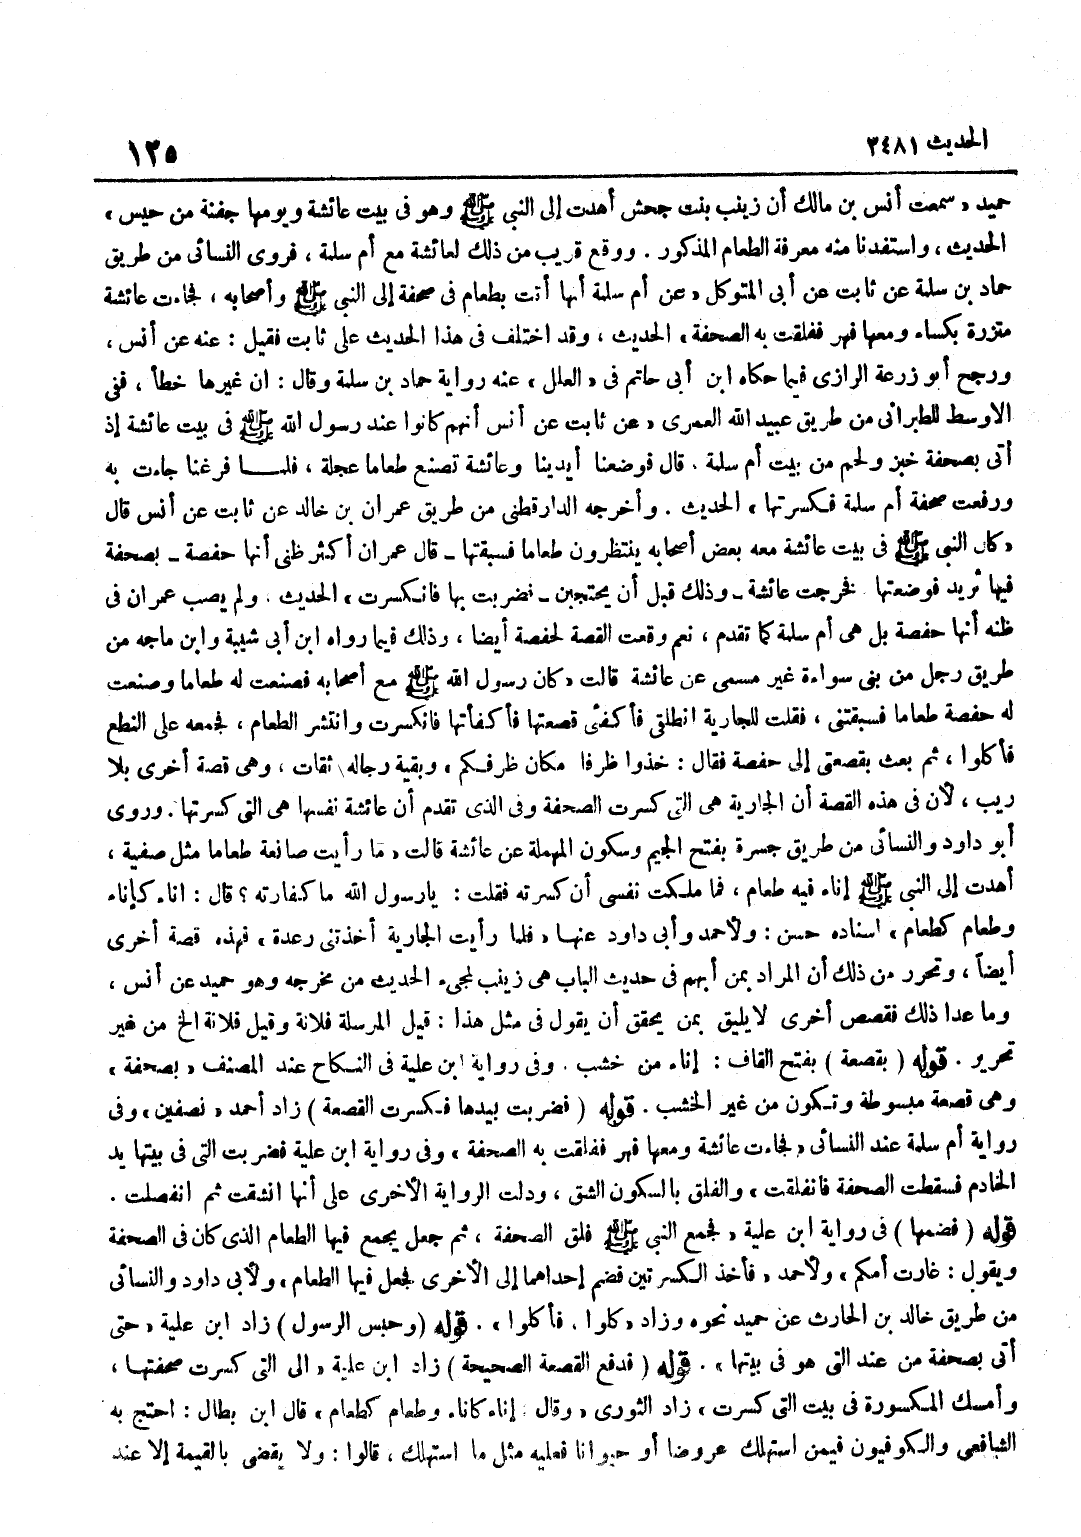 الحديث ٢٤٨١
١٢٥
حميد « سمعت أنس بن مالك أن زينب بنت جحش أهدت إلى النبي ﷺ وهو فى بيت عائشة ويومها جفنة من حيس »
الحديث ، واستفدنا منه معرفة الطعام المذكور . ووقع قريب من ذلك لعائشة مع أم سلمة ، فروى النسائى من طريق
حماد بن سلمة عن ثابت عن أبى المتوكل « عن أم سلمة أنها أتت بطعام فى صحفة إلى النبي ﷺ وأصحابه ، فجاءت عائشة
متزرة بكساء ومعها فهر ففلقت به الصحفة » الحديث ، وقد اختلف فى هذا الحديث على ثابت فقيل : عنه عن أنس ،
ورجح أبو زرعة الرازى فيما حكاه ابن أبى حاتم فى « العلل » عنه رواية حماد بن سلمة وقال : ان غيرها خطأ ، ففى
الاوسط للطبرانى من طريق عبيد الله العمرى « عن ثابت عن أنس أنهم كانوا عند رسول الله ﷺ فى بيت عائشة إذ
أتى بصحفة خبز ولحم من بيت أم سلمة . قال فوضعنا أيدينا وعائشة تصنع طعاما عجلة ، فلمـــا فرغنا جاءت به
ورفعت صحفة أم سلمة فكسرتها » الحديث . وأخرجه الدارقطنى من طريق عمران بن خالد عن ثابت عن أنس قال
« كان النبى ﷺ فى بيت عائشة معه بعض أصحابه ينتظرون طعاما فسبقتها ـ قال عمران أكثر ظنى أنها حفصة ـ بصحفة
فيها ثريد فوضعتها فخرجت عائشة ـ وذلك قبل أن يحتجبن ـ فضربت بها فانكسرت » الحديث . ولم يصب عمران فى
ظنه أنها حفصة بل هى أم سلمة كما تقدم ، نعم وقعت القصة لحفصة أيضا ، وذلك فيما رواه ابن أبى شيبة وابن ماجه من
طريق رجل من بنى سواءة غير مسمى عن عائشة قالت « كان رسول الله ﷺ مع أصحابه فصنعت له طعاما وصنعت
له حفصة طعاما فسبقتنى ، فقلت للجارية انطلقى فأكفئى قصعتها فأكفأتها فانكسرت وانتشر الطعام ، فجمعه على النطع
فأكلوا ، ثم بعث بقصعتى إلى حفصة فقال : خذوا ظرفا مكان ظرفكم » وبقية رجاله ثقات ، وهى قصة أخرى بلا
ريب ، لأن فى هذه القصة أن الجارية هى التى كسرت الصحفة وفى الذى تقدم أن عائشة نفسها هى التى كسرتها . وروى
أبو داود والنسائى من طريق جسرة بفتح الجيم وسكون المهملة عن عائشة قالت « ما رأيت صانعة طعاما مثل صفية ،
أهدت إلى النبى ﷺ إناء فيه طعام ، فما ملكت نفسى أن كسرته فقلت : يارسول الله ما كفارته ؟ قال : اناء كإناء
وطعام كطعام » اسناده حسن : ولأحمد وأبى داود عنهـا « فلما رأيت الجارية أخذتنى رعدة » فهذه قصة أخرى
أيضاً ، وتحرر من ذلك أن المراد بمن أبهم فى حديث الباب هى زينب لمجىء الحديث من مخرجه وهو حميد عن أنس ،
وما عدا ذلك فقصص أخرى لايليق بمن يحقق أن يقول فى مثل هذا : قيل المرسلة فلانة وقيل فلانة الخ من غير
تحرير . قوله ( بقصعة ) بفتح القاف : إناء من خشب . وفى رواية ابن علية فى النكاح عند المصنف « بصحفة »
وهى قصعة مبسوطة وتكون من غير الخشب . قوله ( فضربت بيدها فكسرت القصعة ) زاد أحمد « نصفين » وفى
رواية أم سلمة عند النسائى « فجاءت عائشة ومعها فهر ففلقت به الصحفة » وفى رواية ابن علية فضربت التى فى بيتها يد
الخادم فسقطت الصحفة فانفلقت » والفلق بالسكون الشق ، ودلت الرواية الأخرى على أنها انشقت ثم انفصلت .
قوله ( فضمها ) فى رواية ابن علية « فجمع النبى ﷺ فلق الصحفة ، ثم جعل يجمع فيها الطعام الذى كان فى الصحفة
ويقول : غارت أمكم » ولأحمد « فأخذ الكسرتين فضم إحداهما إلى الأخرى فجعل فيها الطعام » ولأبى داود والنسائى
من طريق خالد بن الحارث عن حميد نحوه وزاد « كلوا . فأكلوا » . قوله ( وحبس الرسول ) زاد ابن علية « حتى
أتى بصحفة من عند التى هو فى بيتها » . قوله ( فدفع القصعة الصحيحة ) زاد ابن علية « الى التى كسرت صحفتها ،
وأمسك المكسورة فى بيت التى كسرت » زاد الثورى « وقال : إناء كاناء وطعام كطعام » قال ابن بطال : احتج به
الشافعى والكوفيون فيمن استهلك عروضا أو حيوانا فعليه مثل ما استهلك ، قالوا : ولا يقضى بالقيمة إلا عند